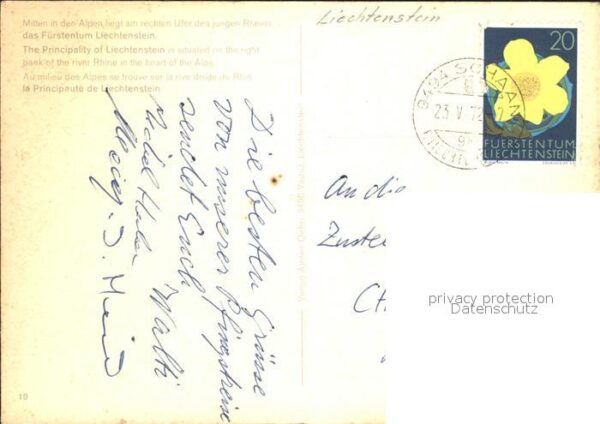 Mitten in den Alpen liegt am rechten Ufer des jungen Rheines
das Fürstentum Liechtenstein.
The Principality of Liechtenstein is situated on the right
bank of the river Rhine in the heart of the Alps.
Au milieu des Alpes se trouve sur la rive droite du Rhin
la Principauté de Liechtenstein.
Liechtenstein
20
FÜRSTENTUM
LIECHTENSTEIN
9494 SCHAAN
23.V.72
Die besten Grüsse
von unserer Pfingstreise
sendet Euch
Walti
An die
Zuste
CH
privacy protection
Datenschutz
10